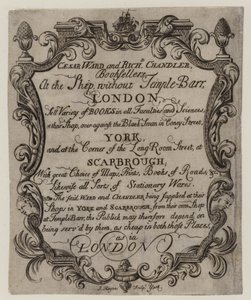 CÆSAR WARD and RICHD CHANDLER,
Booksellers,
At the Ship, without Temple-Barr,
LONDON,
Sell Variety of BOOKS in all Faculties and Sciences,
at their Shop, over against the Black Swan in Coney Street,
YORK,
and at the Corner of the Long-Room Street, at
SCARBROUGH,
With great Choice of Maps, Prints, Books of Roads, &c
Likewise all Sorts of Stationary Wares.
The said WARD and CHANDLER, being supplied at their
Shops in YORK and SCARBROUGH, from their own Shop
at Temple-Barr, the Publick may therefore depend on
being serv'd by them, as cheap in both those Places,
as in
LONDON
Sculp. York.